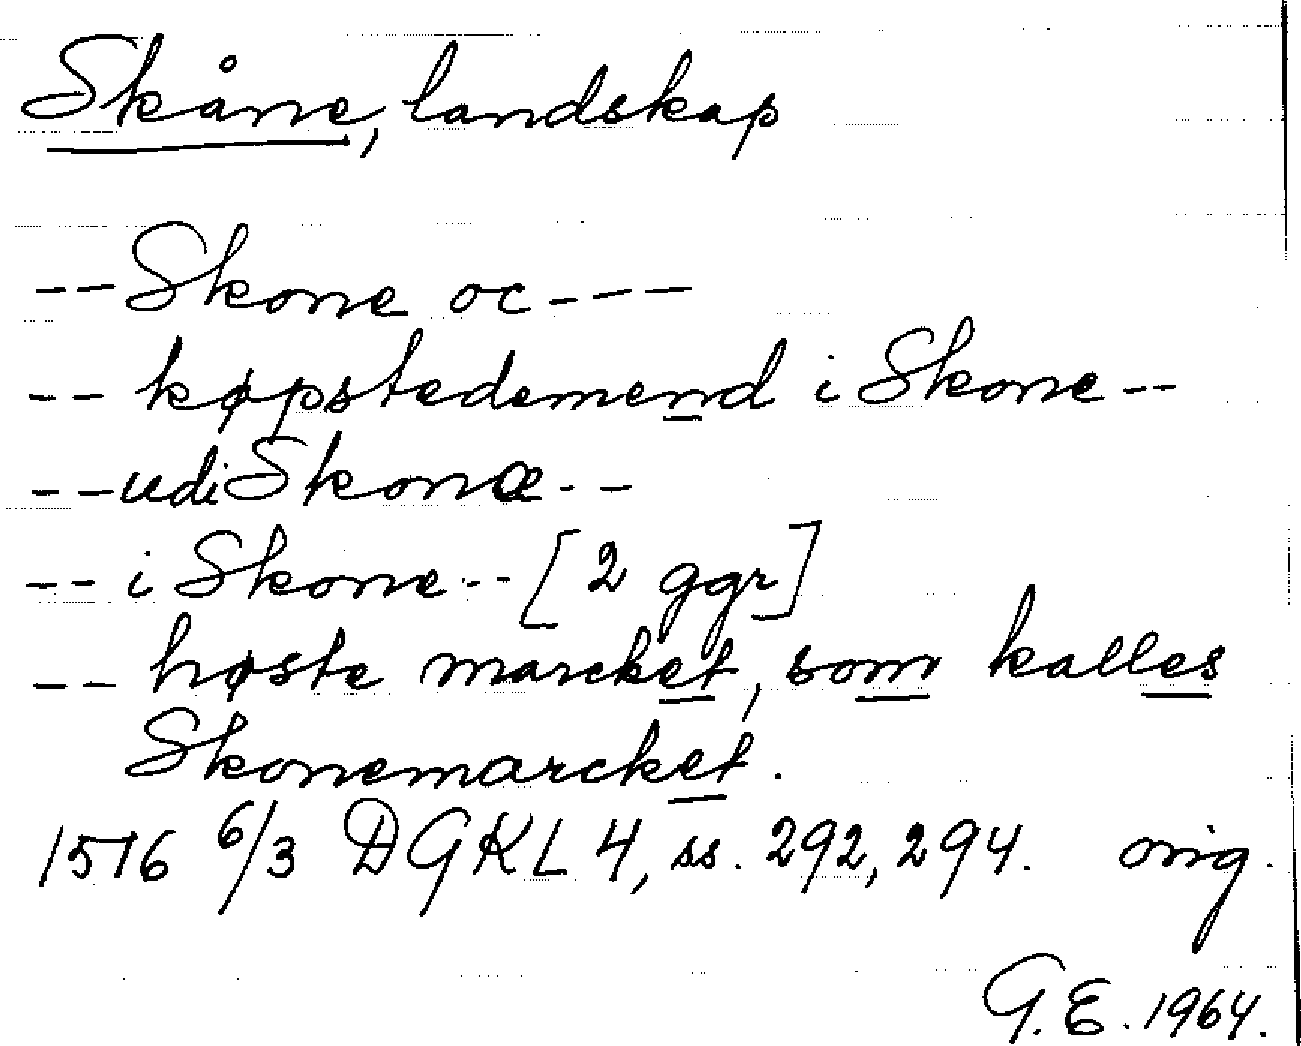 Skåne, landskap
-- Skone oc ---
-- køpstedemend i Skone --
-- udi Skonæ --
-- i Skone -- [2 ggr]
-- høste marcket, som kalles
Skonemarcket.
1516 6/3 DGKL 4, ss. 292, 294. orig.
G.E. 1964.